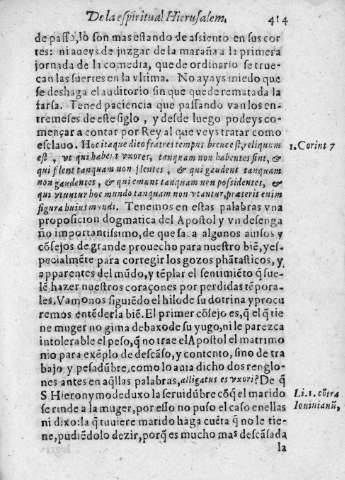 De la espiritual Hierusalem. 414
de passo, lo son mas estando de assiento en sus cor
tes: ni aueys de juzgar de la maraña a la primera
jornada de la comedia, que de ordinario se true-
can las suertes en la vltima. No ayays miedo que
se deshaga el auditorio sin que quede rematada la
farsa. Tened paciencia que passando van los en-
tremeses de este siglo, y desde luego podeys co-
mençar a contar por Rey al que veys tratar como
esclauo. Hoc itaque dico fratres tempus breue est, reliquum
1. Corint 7
est, vt qui habent vxores, tanquam non habentes sint, &
qui flent tanquam non flentes, & qui gaudent tanquam
non gaudentes, & qui emunt tanquam non possidentes, &
qui vtuntur hoc mundo tanquam non vtantur, præterit enim
figura huius mundi. Tenemos en estas palabras vna
proposicion dogmatica del Apostol y vn desenga
ño importantissimo, de que saca algunos auisos y
cōsejos de grande prouecho para nuestro biē, y es-
pecialmēte para corregir los gozos phātasticos, y
apparentes del mūdo, y tēplar el sentimiēto q̄ sue-
lē hazer nuestros coraçones por perdidas tēpora-
les. Vamonos siguiēdo el hilo de su dotrina y procu
remos entēderla biē. El primer cōsejo es, q̄ el q̄ tie
ne muger no gima debaxo de su yugo, ni le parezca
intolerable el peso, q̄ no trae el Apostol el matrimo
nio para exēplo de descāso, y contento, sino de tra
bajo y pesadūbre, como lo auia dicho dos renglo-
nes antes en aq̄llas palabras, alligatus es vxori? De q̄
S. Hieronymo deduxo la seruidūbre cōq̄ el marido
Li. 1. cōtra
se rinde a la muger, por esso no puso el caso en ellas
Iouinianū,
ni dixo: la q̄ tuuiere marido haga cuēta q̄ no le tie-
ne, pudiēdolo dezir, porq̄ es mucho mas descāsada
la